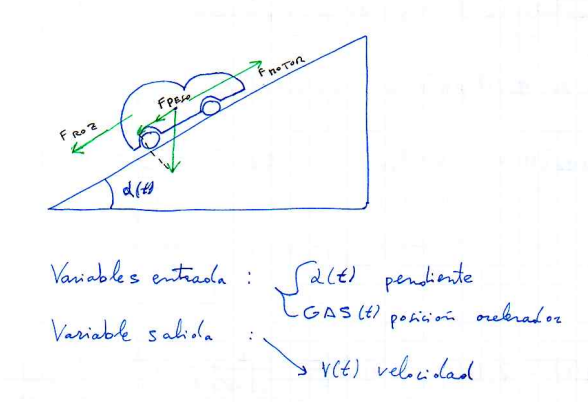 F MOTOR
F PESO
F ROZ
α(t)
Variables entrada : { α(t) pendiente
GAS(t) posición acelerador
Variable salida :
V(t) velocidad